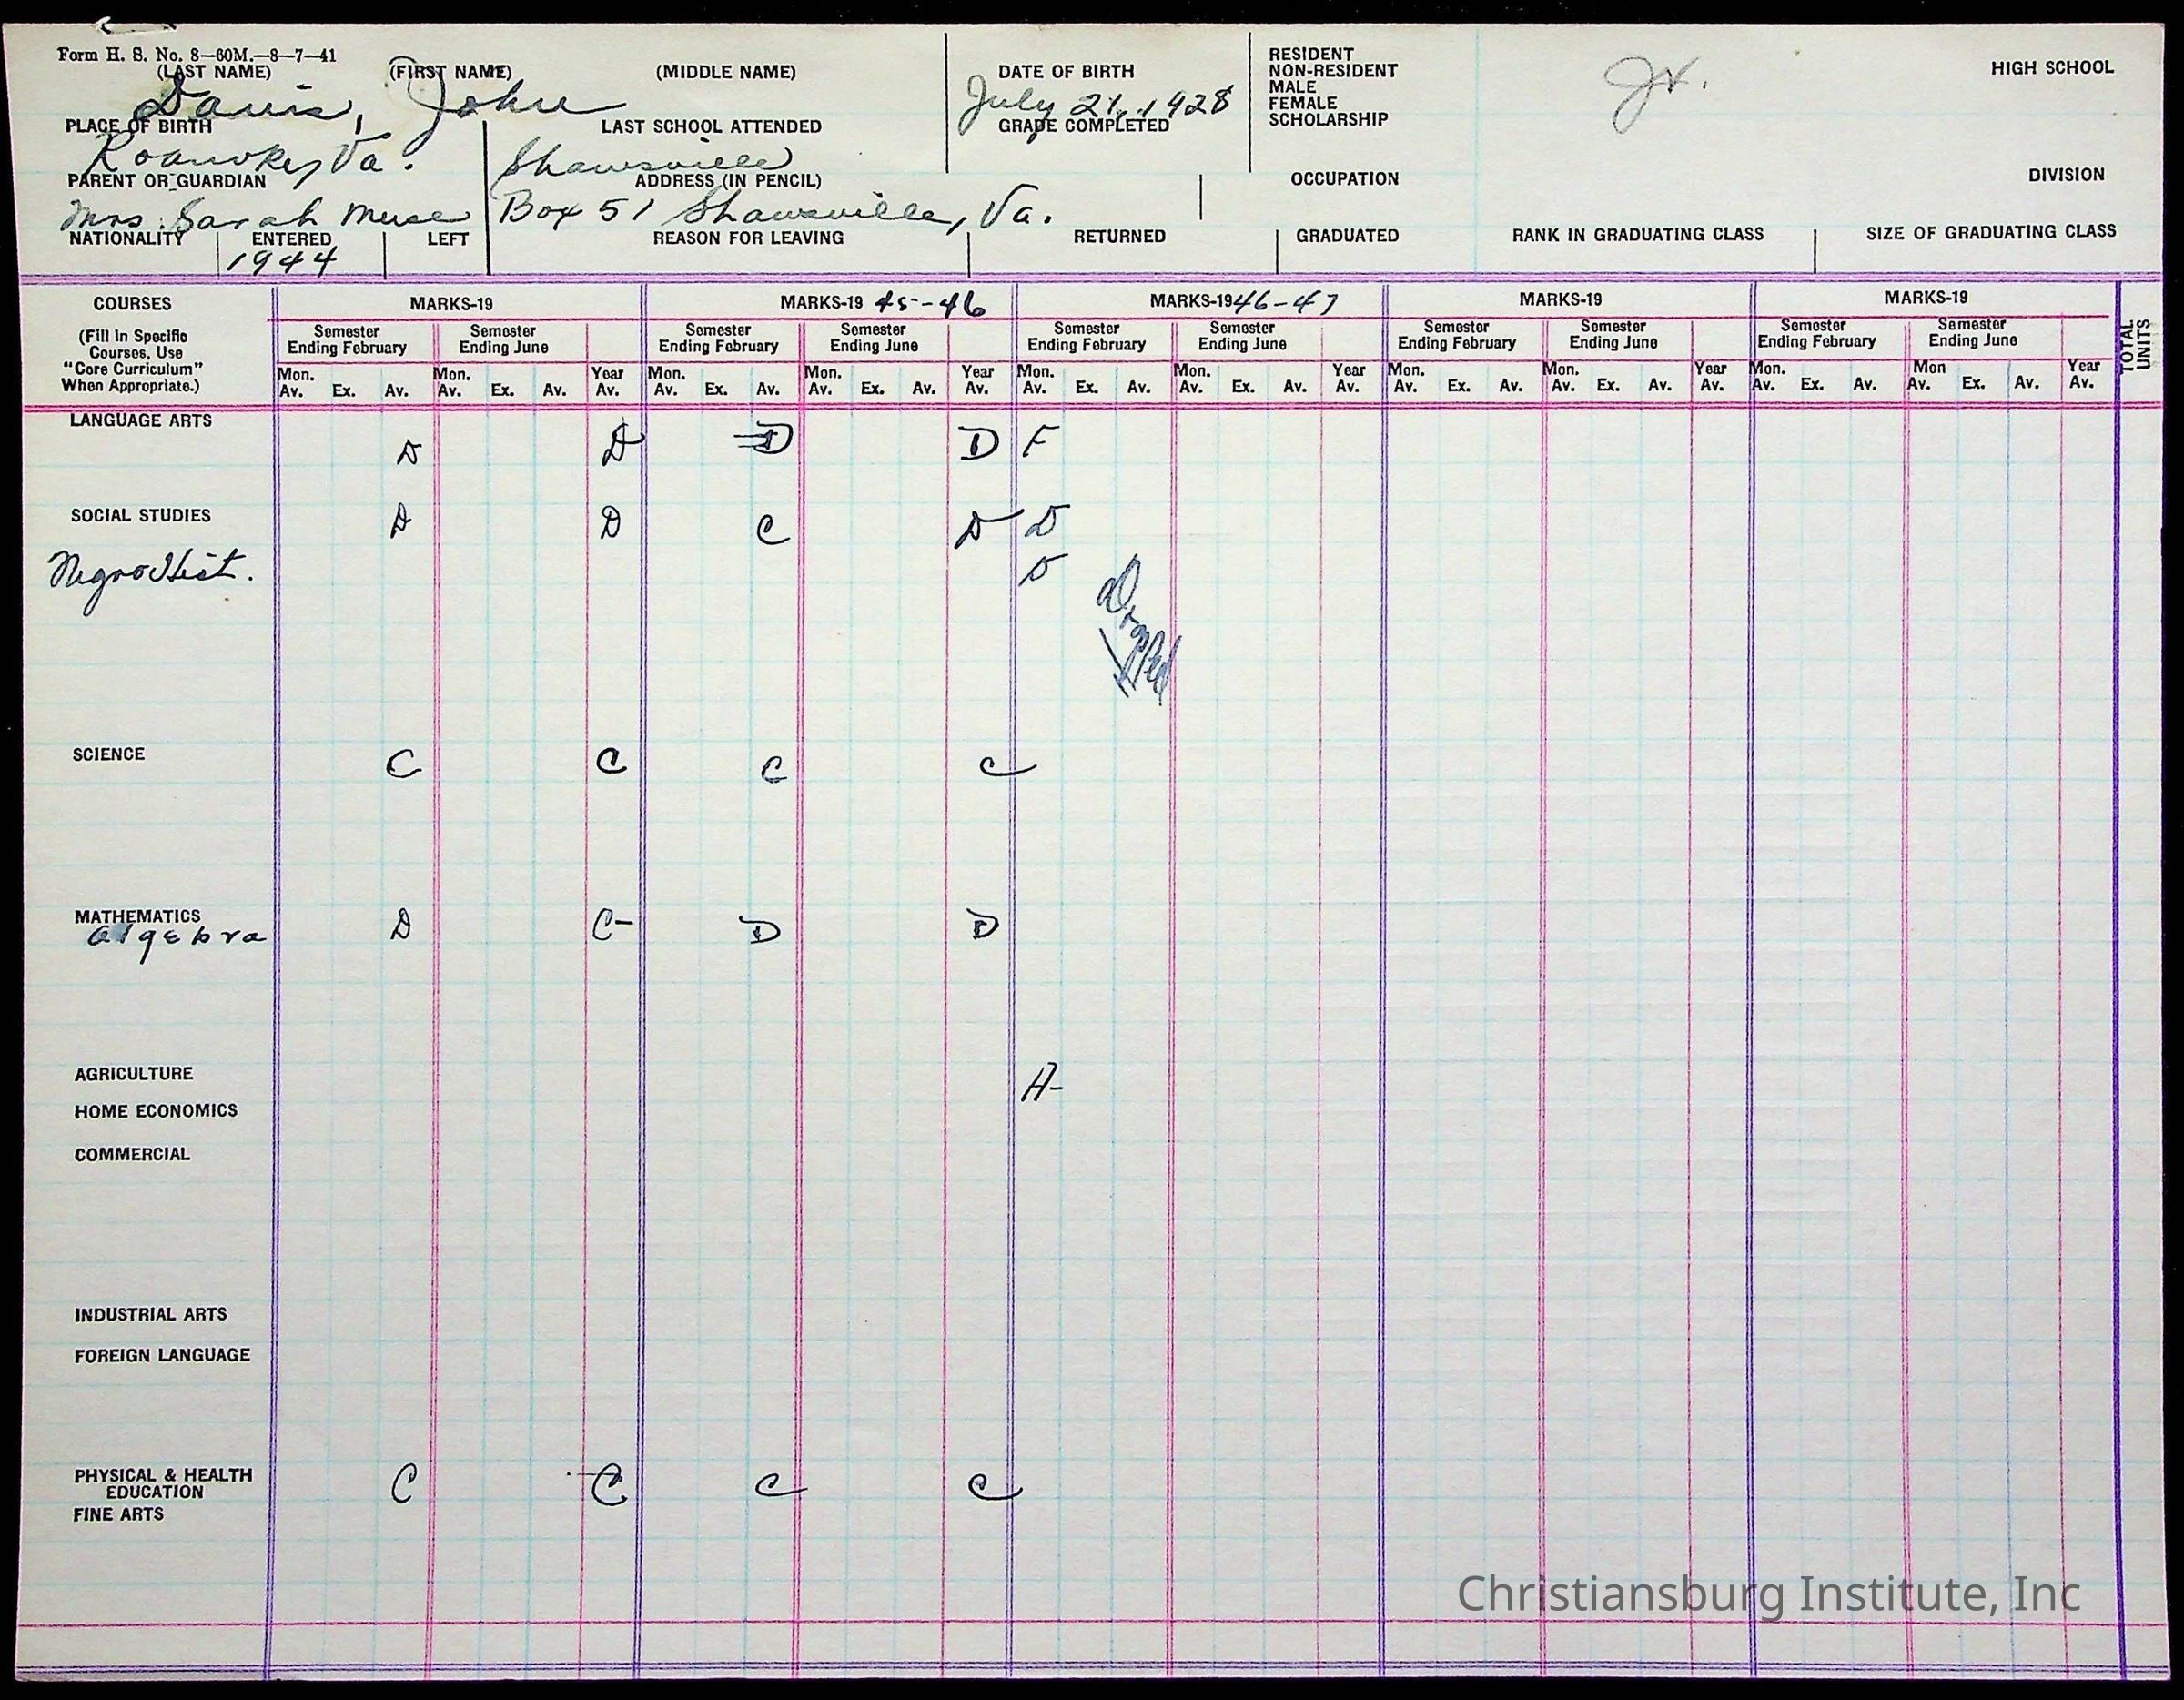 Form H. S. No. 8—60M.—8—7—41
(LAST NAME) (FIRST NAME) (MIDDLE NAME) DATE OF BIRTH
RESIDENT
NON-RESIDENT
MALE
FEMALE
SCHOLARSHIP
Jr.
HIGH SCHOOL
Davis, John July 21, 1928
PLACE OF BIRTH LAST SCHOOL ATTENDED GRADE COMPLETED
Roanoke, Va. Shawsville
PARENT OR GUARDIAN ADDRESS (IN PENCIL) OCCUPATION DIVISION
Mrs. Sarah Muse Box 51 Shawsville, Va.
NATIONALITY ENTERED LEFT REASON FOR LEAVING RETURNED GRADUATED RANK IN GRADUATING CLASS SIZE OF GRADUATING CLASS
1944
COURSES MARKS-19 MARKS-19 45-46 MARKS-19 46-47 MARKS-19 MARKS-19
(Fill in Specific
Courses, Use
"Core Curriculum"
When Appropriate.)
Semester Semester Semester Semester Semester Semester Semester Semester Semester Semester
Ending February Ending June Ending February Ending June Ending February Ending June Ending February Ending June Ending February Ending June
Mon. Mon. Year Mon. Mon. Year Mon. Mon. Year Mon. Mon. Year Mon. Mon Year
Av. Ex. Av. Av. Ex. Av. Av. Av. Ex. Av. Av. Ex. Av. Av. Av. Ex. Av. Av. Ex. Av. Av. Av. Ex. Av. Av. Ex. Av. Av. Av. Ex. Av. Av. Ex. Av. Av.
TOTAL UNITS
LANGUAGE ARTS
D D D D F
SOCIAL STUDIES D D C D D
Negro Hist. D
Dropped
SCIENCE C C C C
MATHEMATICS
Algebra D C- D D
AGRICULTURE A-
HOME ECONOMICS
COMMERCIAL
INDUSTRIAL ARTS
FOREIGN LANGUAGE
PHYSICAL & HEALTH
EDUCATION C C C C
FINE ARTS
Christiansburg Institute, Inc